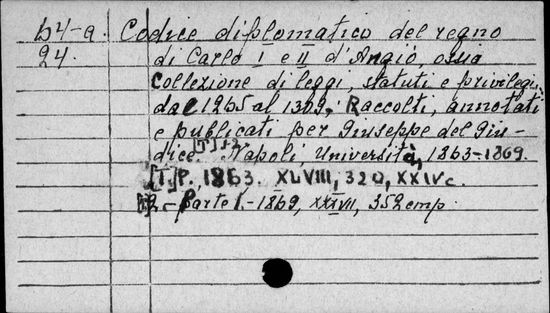 b4-a Codice diplomatico del regno
24. di Carlo I e II d'Angiò, ossia
collezione di leggi, statuti e privilegi,
dal 1265 al 1309. Raccolti, annotati
e pubblicati per Giuseppe del Giu-
dice. [T] 1-2 Napoli, Università, 1863-1869.
[T] P., 1863. XLVIII, 320, XXIV c.
2 - Parte 1. - 1869, XXXVII, 352 cmp.